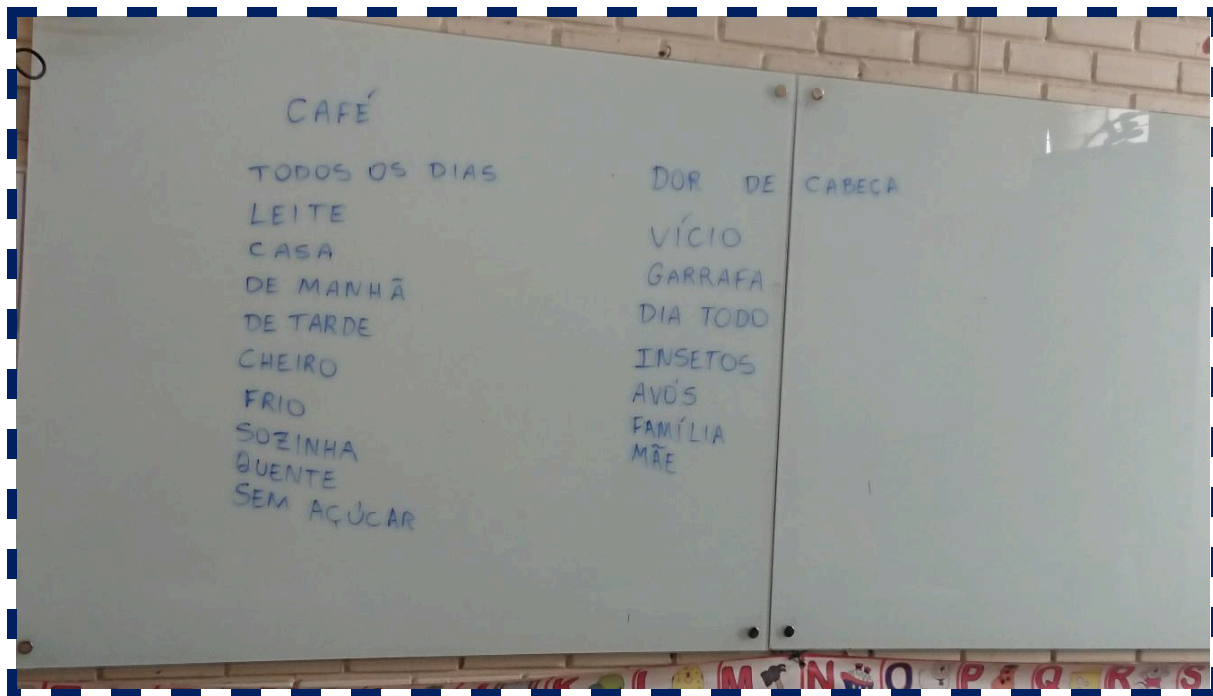 CAFÉ
TODOS OS DIAS
LEITE
CASA
DE MANHÃ
DE TARDE
CHEIRO
FRIO
SOZINHA
QUENTE
SEM AÇÚCAR
DOR DE CABEÇA
VÍCIO
GARRAFA
DIA TODO
INSETOS
AVÓS
FAMÍLIA
MÃE
K L M N O P Q R S